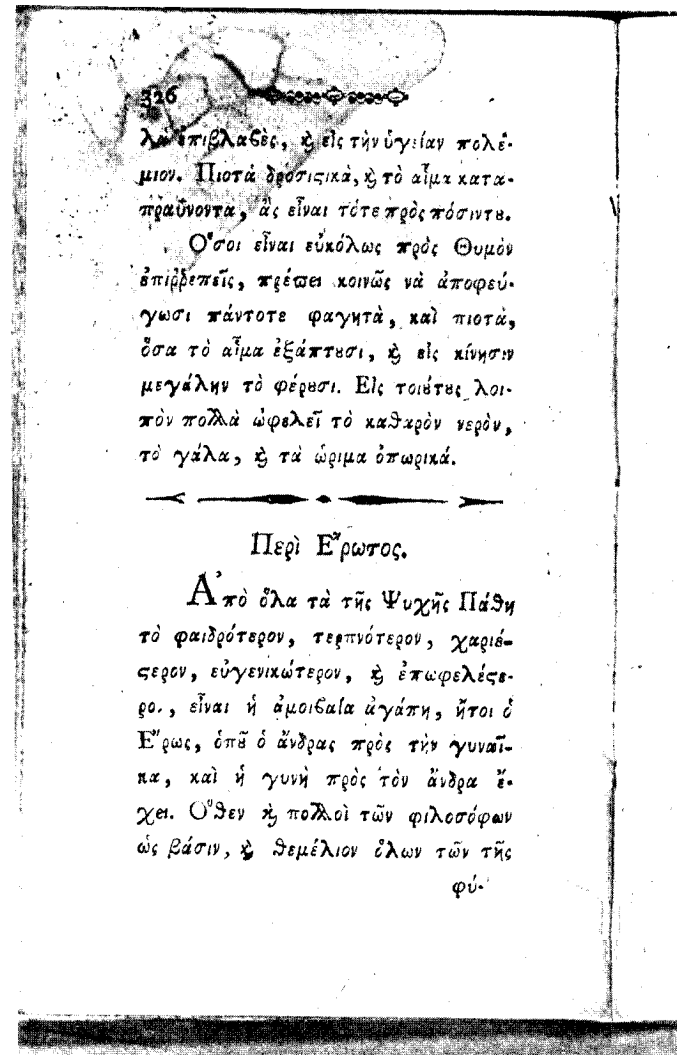 326
λὰ ἐπιβλαβὲς, ϗ εἰς τὴν ὑγείαν πολέ-
μιον. Πιοτὰ δροσιστικὰ, ϗ τὸ αἷμα κατα-
πραΰνοντα, ἂς εἶναι τότε πρὸς πόσιντȣ.
Ὅσοι εἶναι εὐκόλως πρὸς Θυμὸν
ἐπιῤῥεπεῖς, πρέπει κοινῶς νὰ ἀποφεύ-
γωσι πάντοτε φαγητὰ, καὶ πιοτὰ,
ὅσα τὸ αἷμα ἐξάπτȣσι, ϗ εἰς κίνησιν
μεγάλην τὸ φέρȣσι. Εἰς τοιȣ́τȣς λοι-
πὸν πολλὰ ὠφελεῖ τὸ καθαρὸν νερὸν,
τὸ γάλα, ϗ τὰ ὥριμα ὀπωρικά.
Περὶ Ἔρωτος.
Ἀπὸ ὅλα τὰ τῆς Ψυχῆς Πάθη
τὸ φαιδρότερον, τερπνότερον, χαριέ-
ϛερον, εὐγενικώτερον, ϗ ἐπωφελέϛε-
ρο., εἶναι ἡ ἀμοιβαία ἀγάπη, ἤτοι ὁ
Ἔρως, ὁπȣ͂ ὁ ἄνδρας πρὸς τὴν γυναῖ-
κα, καὶ ἡ γυνὴ πρὸς τὸν ἄνδρα ἔ-
χει. Ὅθεν ϗ πολλοὶ τῶν φιλοσόφων
ὡς βάσιν, ϗ θεμέλιον ὅλων τῶν τῆς
φύ-